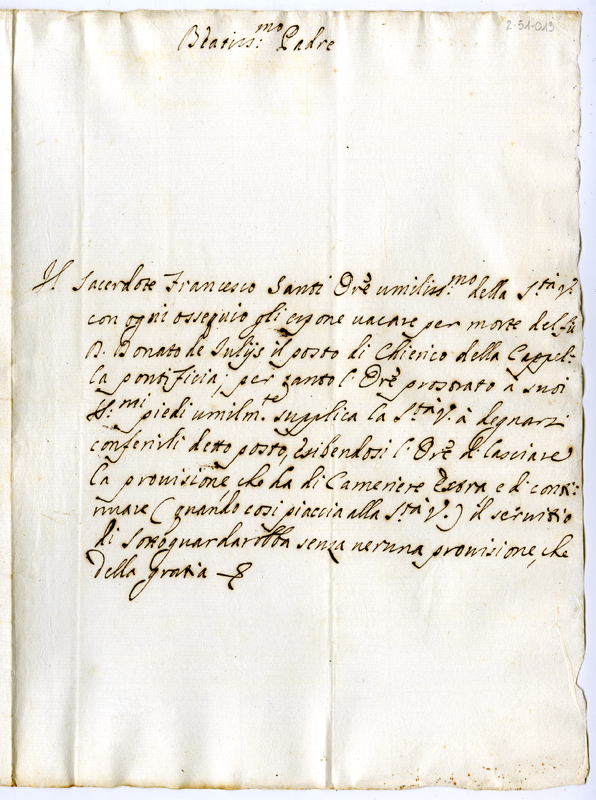 2-51-013
Beatiss.mo Padre
Il Sacerdote Francesco Santi Ore umiliss.mo della S.tà V.
con ogni ossequio gli espone uacare per morte del fu
D. Donato de Iulijs il posto di Chierico della Cappel:
la pontificia; per tanto l'Ore prostrato à suoi
SS.mi piedi umilm.te supplica la S.tà V. à degnarsi
conferirli detto posto, esibendosi l'Ore di lasciare
la prouisione che ha di Cameriere Extra, e di conti:
nuare (quando così piaccia alla S.tà V.) il seruitio
di Sottoguardarobba senza neruna prouisione, che
della gratia